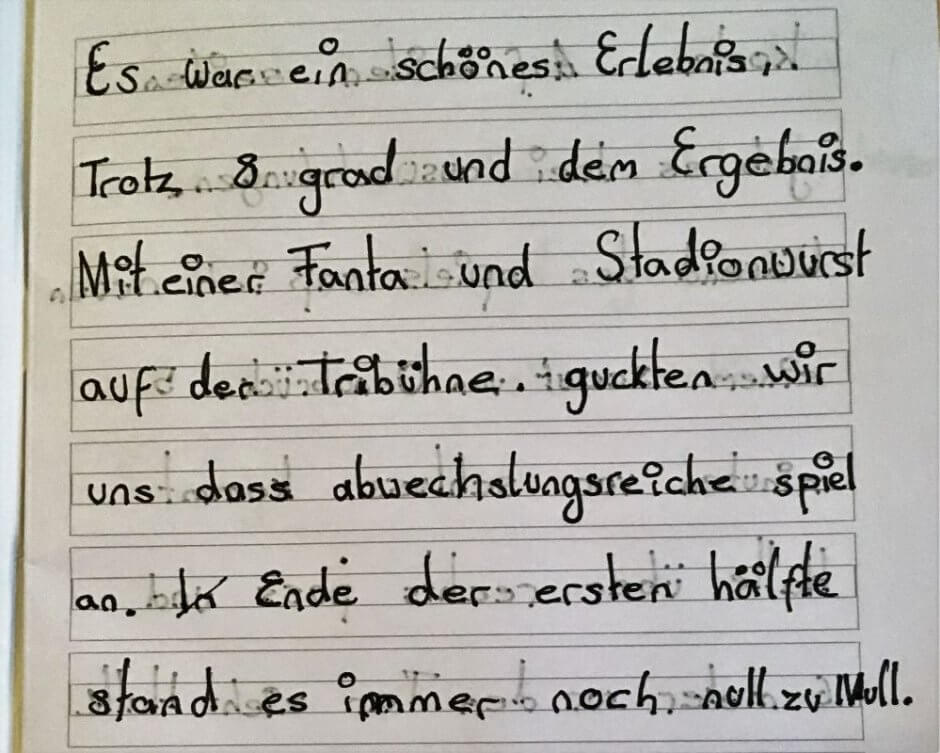 Es war ein schönes Erlebnis,
Trotz 8 grad und dem Ergebnis.
Mit einer Fanta und Stadionwurst
auf der Tribühne. guckten wir
uns dass abwechslungsreiche spiel
an. Ende der ersten hälfte
stand es immer noch null zu Null.